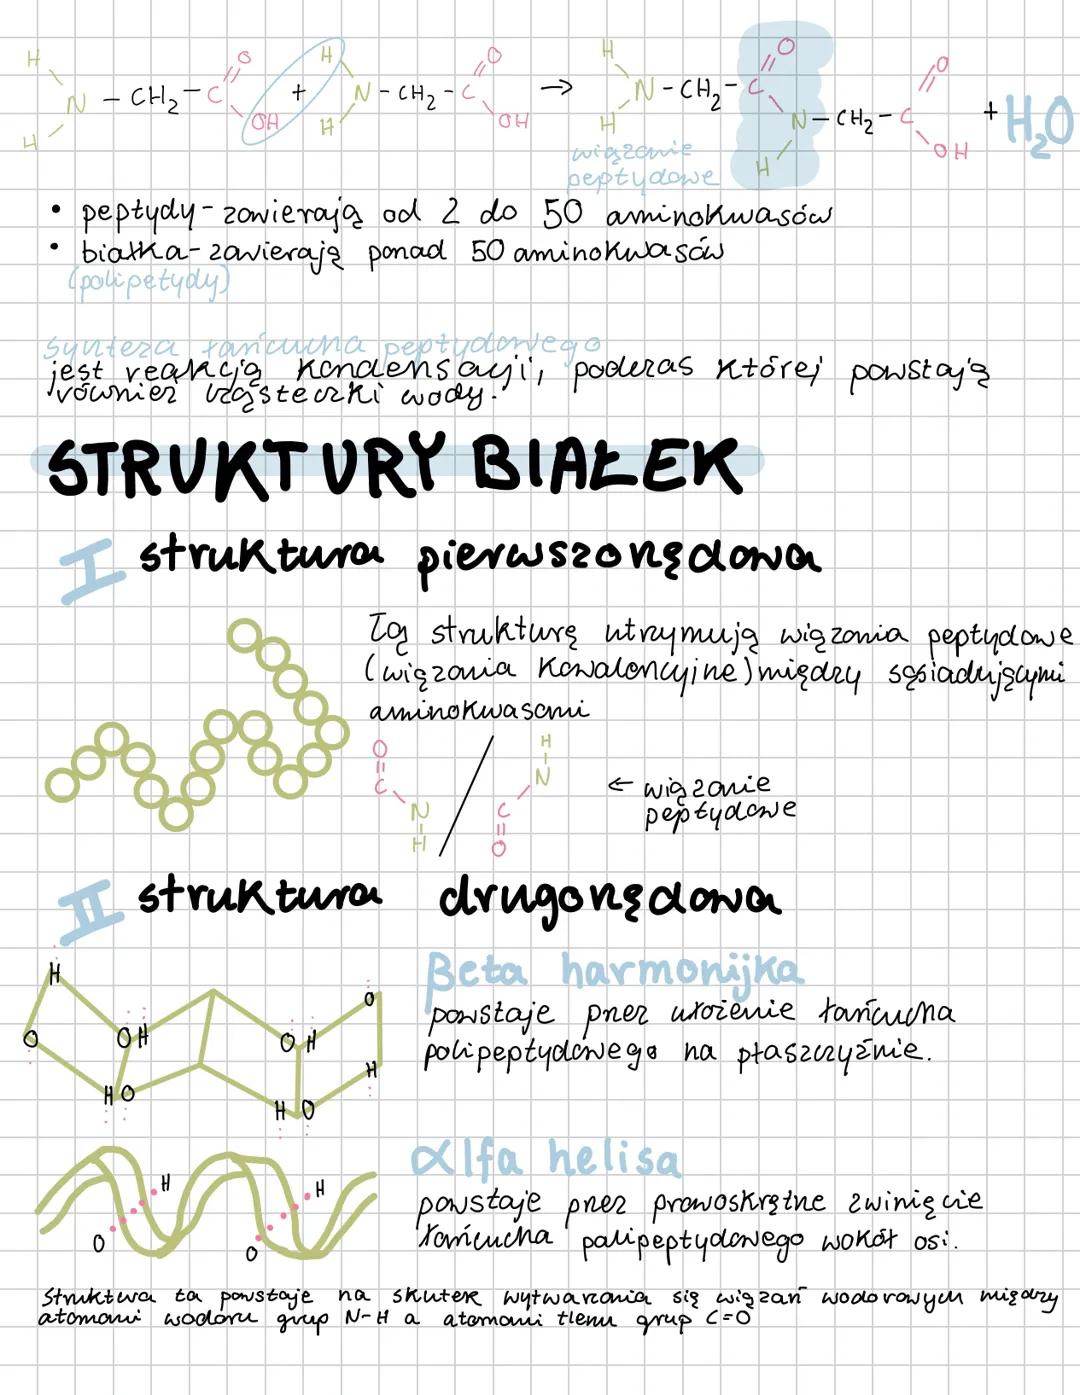 H
H
N - CH2 - C
O
OH
+
H
H
N - CH2 - C
O
OH
→
H
H
N - CH2 - C
O
N - CH2 - C
H
O
OH
+ H2O
wiązanie
peptydowe
• peptydy - zawierają od 2 do 50 aminokwasów
• białka - zawierają ponad 50 aminokwasów
(polipetydy)
synteza łańcucha peptydowego
jest reakcją kondensacji, podczas której powstają
również cząsteczki wody.
STRUKTURY BIAŁEK
I struktura pierwszorzędowa
Tą strukturę utrzymują wiązania peptydowe
(wiązania kowalencyjne) między sąsiadującymi
aminokwasami
O
=
C
N
H
H
N
C
=
O
← wiązanie
peptydowe
II struktura drugorzędowa
H
O
OH
HO
OH
HO
O
H
Beta harmonijka
powstaje przez ułożenie łańcucha
polipeptydowego na płaszczyźnie.
H
O
H
O
αlfa helisa
powstaje przez prawoskrętne zwinięcie
łańcucha polipeptydowego wokół osi.
Struktura ta powstaje na skutek wytwarzania się wiązań wodorowych między
atomami wodoru grup N-H a atomami tlenu grup C=O